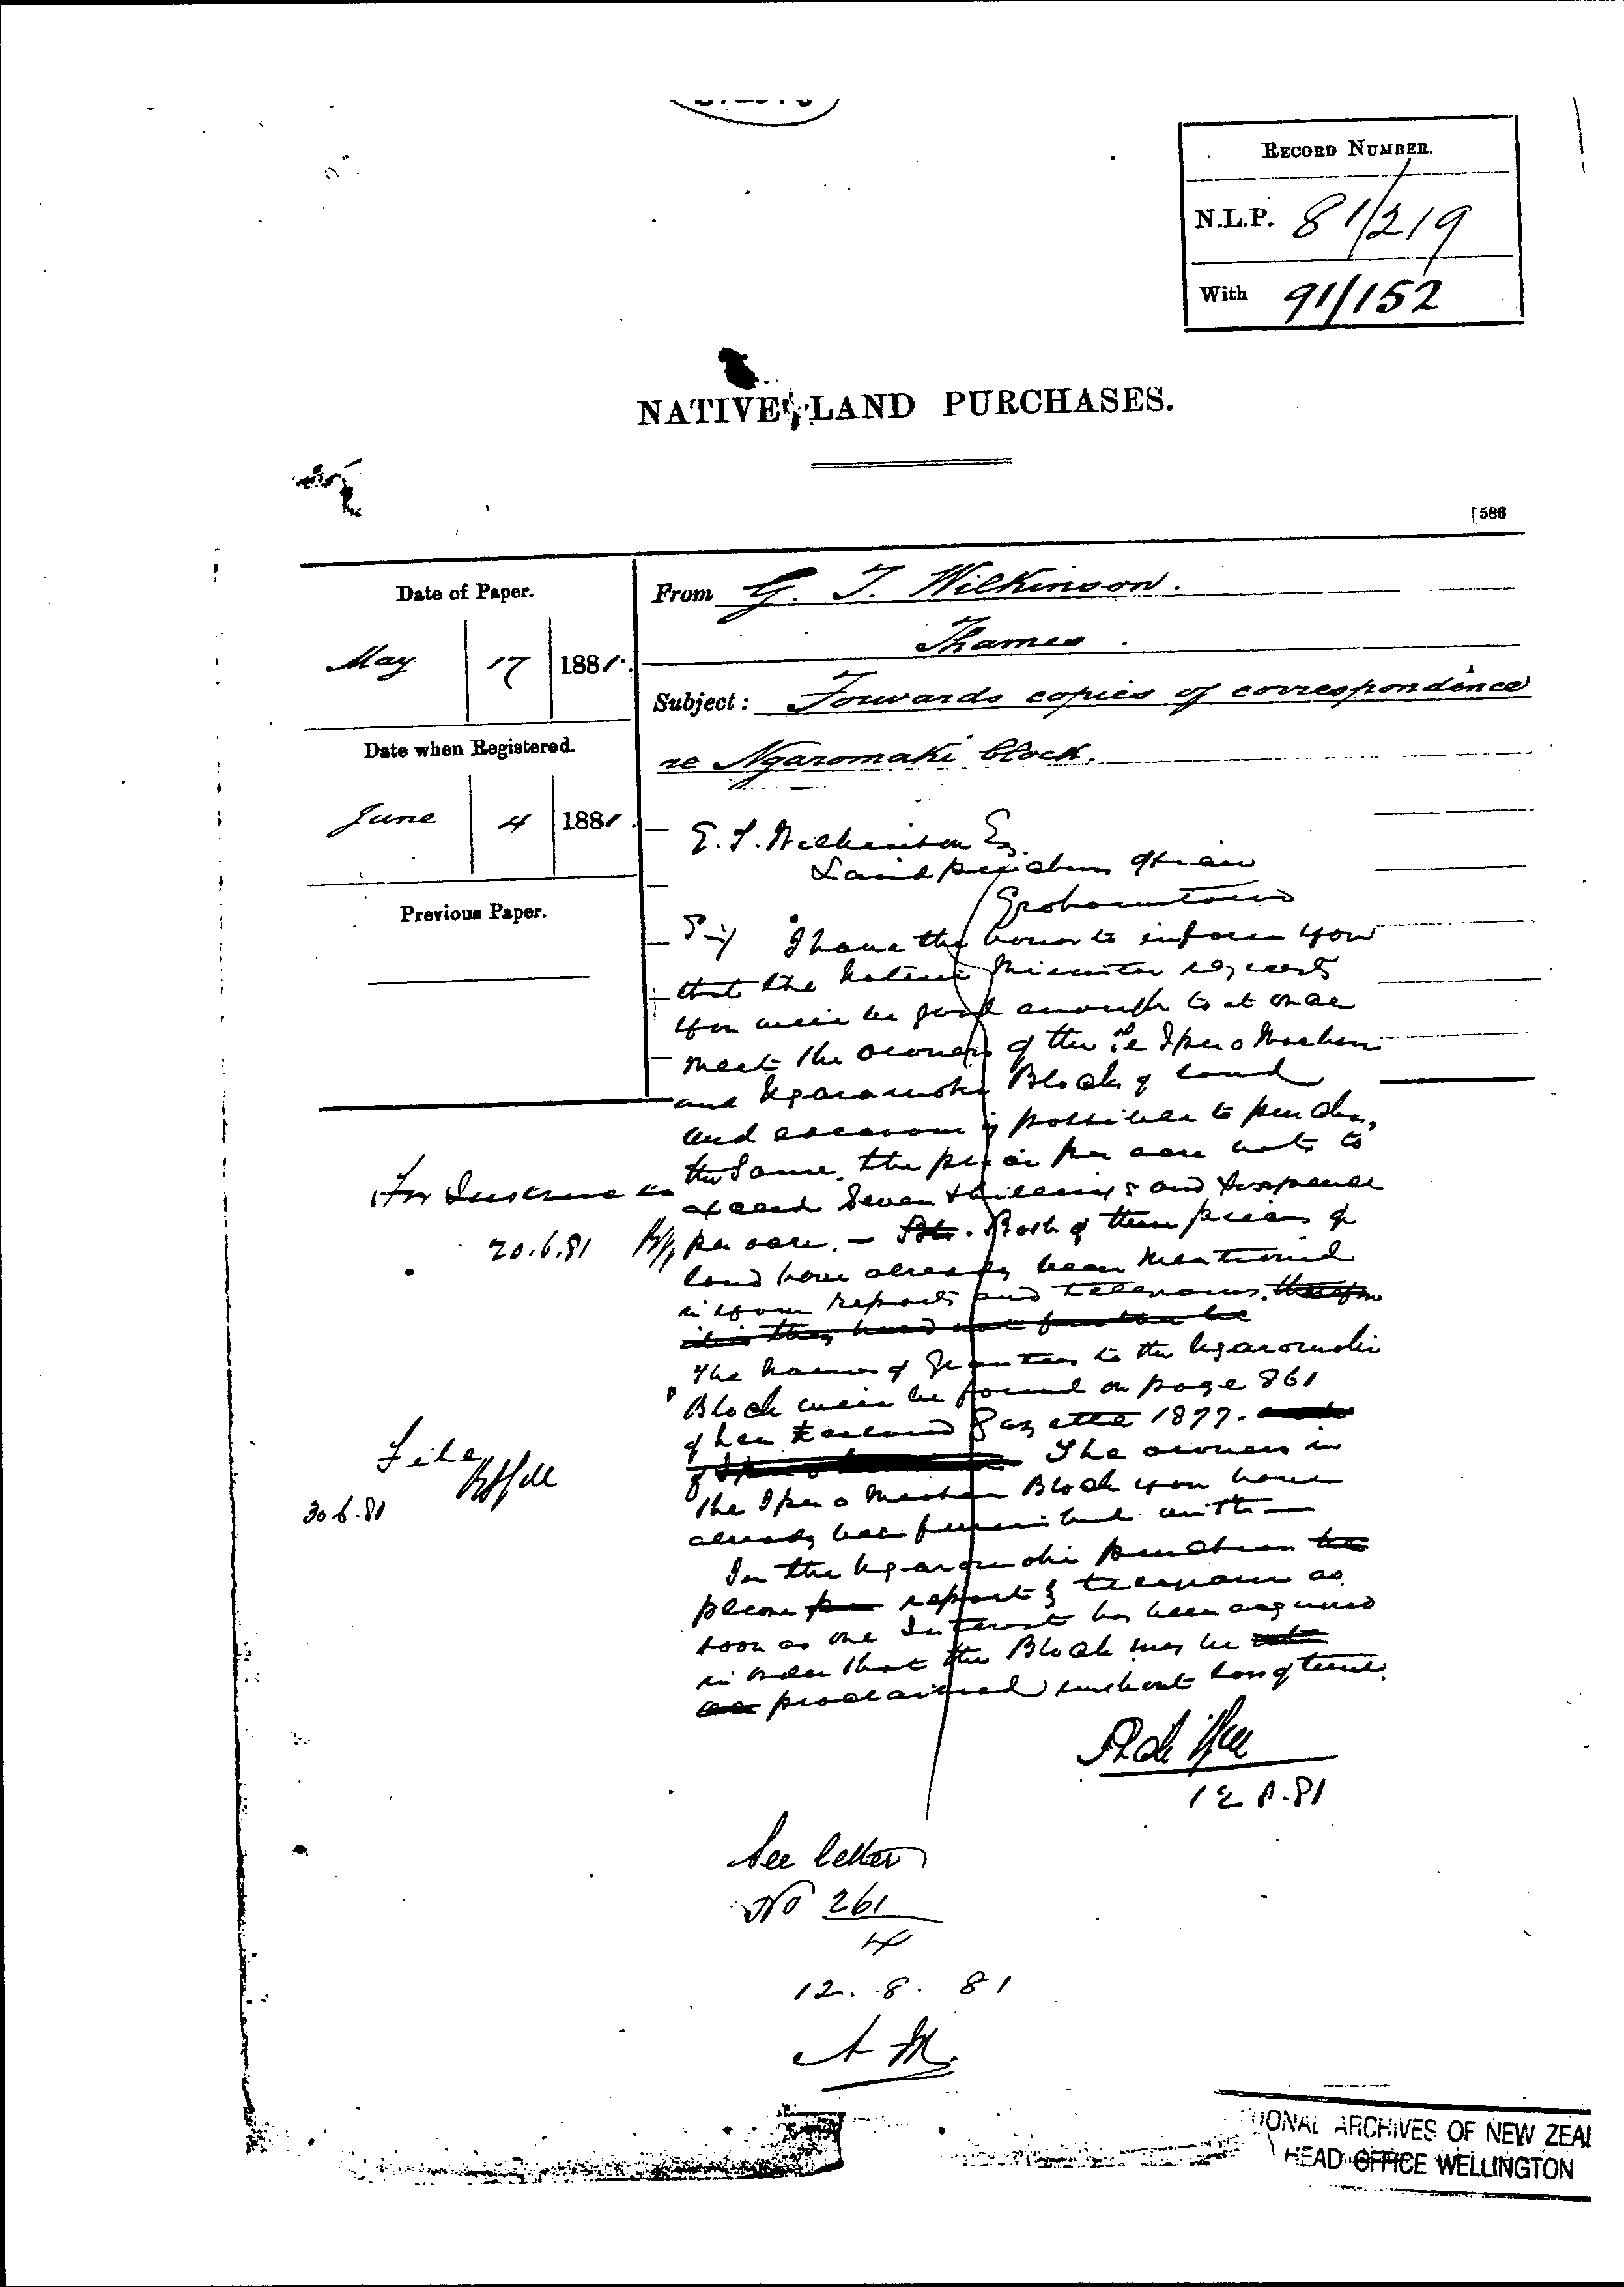 RECORD NUMBER.
N.L.P. 81/219
With 91/152
NATIVE LAND PURCHASES.
[586
Date of Paper.
May 17 1881.
Date when Registered.
June 4 1881.
Previous Paper.
From G. T. Wilkinson.
Thames.
Subject: Forwards copies of correspondence
re Ngaromaki block.
G. T. Wilkinson Esq.
Land purchase Officer
Grahamstown
Sir, I have the honor to inform you
that the Native Minister requests
you will be good enough to at once
meet the owners of the Te Ipu o Moehau
and Ngaromaki Block of land
and endeavour if possible to purchase
the same. the price per acre not to
exceed Seven shillings and sixpence
per acre. — Both of these pieces of
land have already been mentioned
in your reports and telegrams.
The names of Grantees to the Ngaromaki
Block will be found on page 861
of Gazette 1877.
The owners in
the Ipu o Moehau Block you have
already been furnished with —
In the Ngaromaki purchase
please report by telegram as
soon as one Interest has been acquired
in order that the Block may be
proclaimed without loss of time.
12.8.81
20.6.81
File
30.6.81
See letter
No 261
4
12. 8. 81
IONAL ARCHIVES OF NEW ZEAL
HEAD OFFICE WELLINGTON